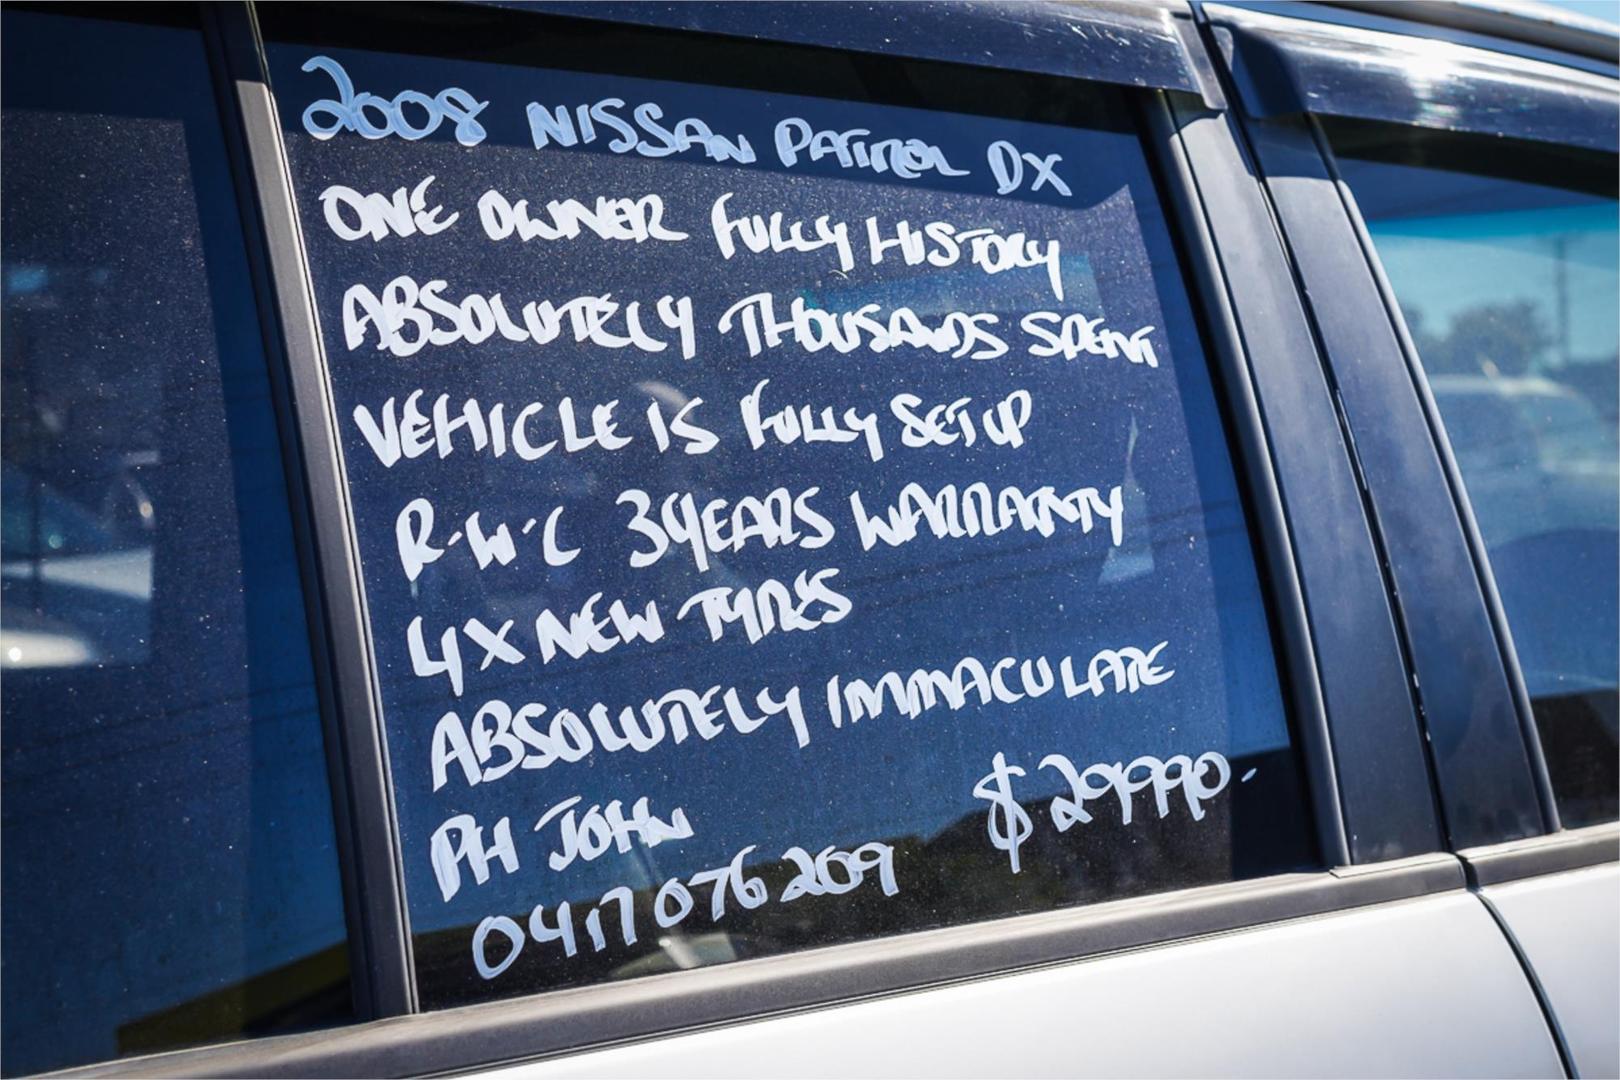 2008 NISSAN PATROL DX
ONE OWNER FULLY HISTORY
ABSOLUTELY THOUSANDS SPENT
VEHICLE IS FULLY SET UP
R·W·C 3YEARS WARRANTY
4X NEW TYRES
ABSOLUTELY IMMACULATE
PH JOHN
0417 076 209 $29990-